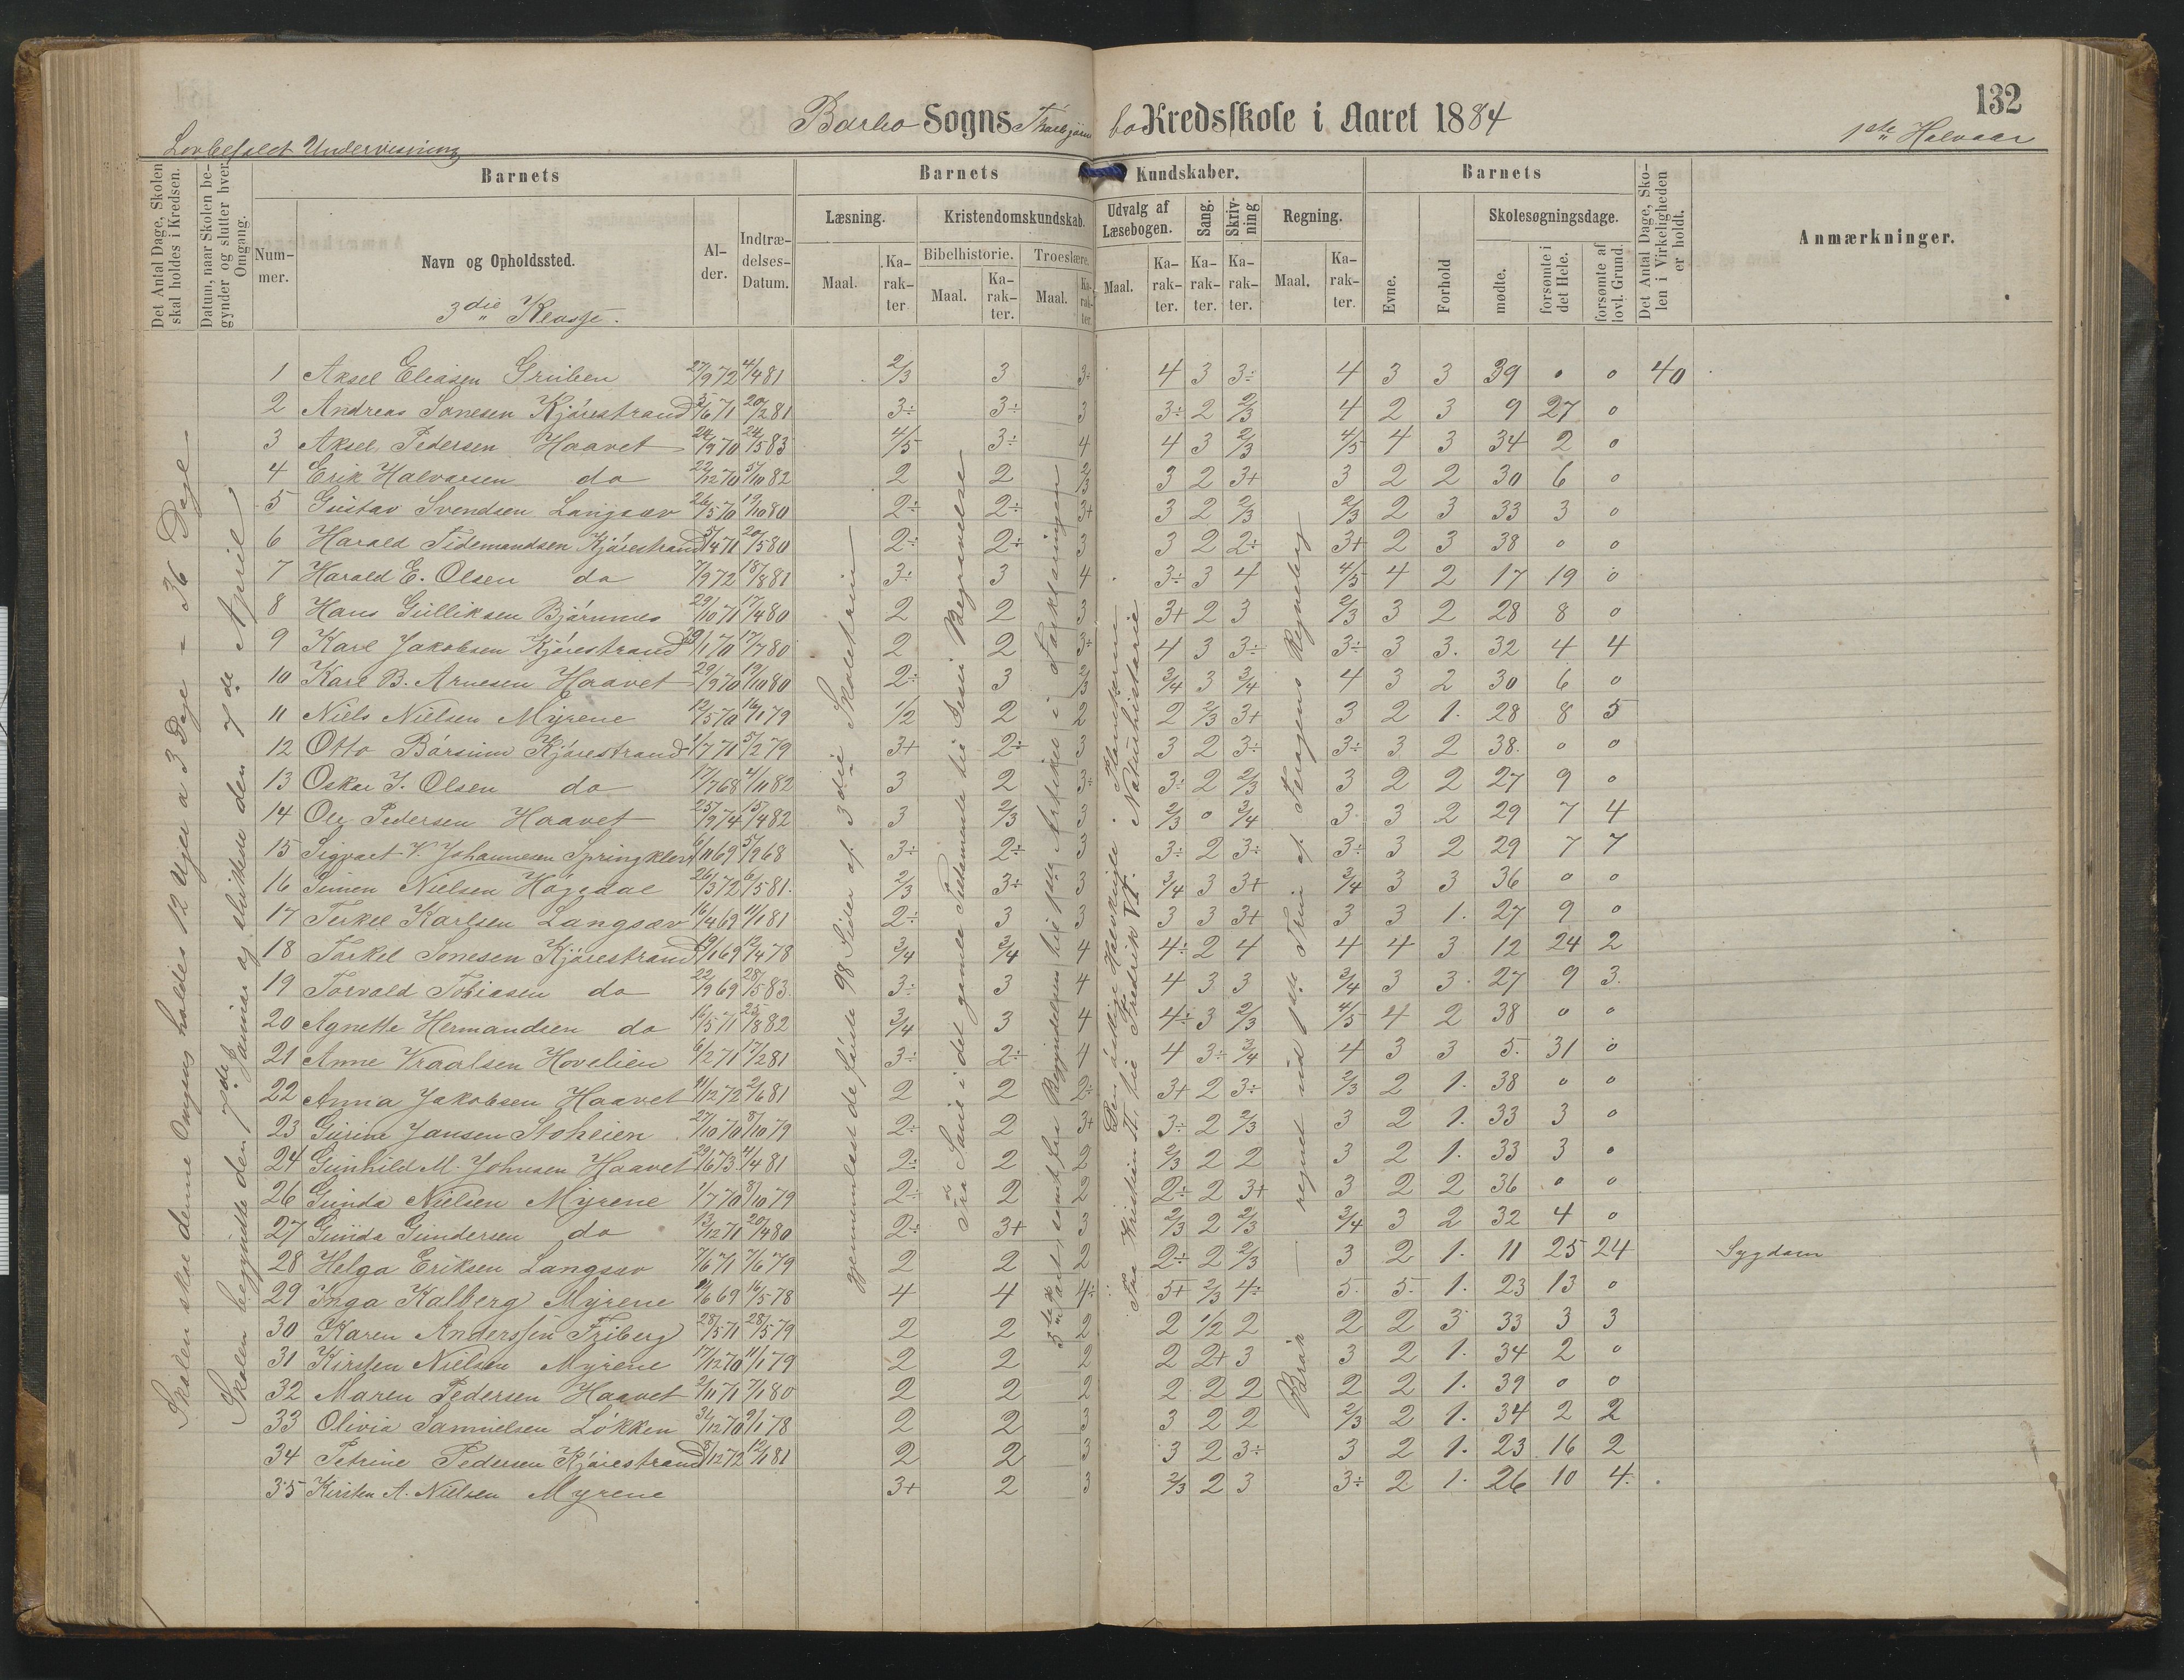 132
Barbo Sogns Thorbjørnbo Kredsskole i Aaret 1884
1ste Halvaar
Lovbefalet Undervisning
Det Antal Dage, Skolen skal holdes i Kredsen.
Datum, naar Skolen begynder og slutter hver Omgang.
Barnets
Nummer.
Navn og Opholdssted.
Alder.
Indtrædelses-Datum.
Barnets Kundskaber.
Læsning.
Maal.
Karakter
Kristendomskundskab.
Bibelhistorie.
Maal.
Karakter.
Troeslære.
Maal.
Karakter
Udvalg af Læsebogen.
Maal.
Karakter.
Sang.
Karakter.
Skrivning
Karakter.
Regning.
Maal.
Karakter.
Barnets
Evne.
Forhold
Skolesøgningsdage.
mødte.
forsømte i det Hele.
forsømte af lovl. Grund.
Det Antal Dage, Skolen i Virkeligheden er holdt.
Anmærkninger.
3die Klasse.
Skolen skal denne Omgang holdes 12 Uger a 3 Dage = 36 Dage
Skolen begyndte den 7de Januar og sluttede den 7de April
gjennemlæst de første 98 Sider af 3die Skoletrin
Fra Saul i det gamle Testamente til Jesu Begravelse
3die Part samt fra Begyndelsen til 1ste Artikel i Forklaringen
Den østlige Halvkugle. Planeterne
Fra Kristian II. til Fredrik VI. Naturhistorie
Brøk — regnet ud 1ste Trin af Feragens Regnebog
1 Aksel Eliasen Gruben 27/9 72 4/4 81 2/3 3 3+ 4 3 3÷ 4 3 3 39 0 0 40
2 Andreas Sonesen Kjørestrand 5/6 71 20/2 81 3÷ 3÷ 3 3÷ 2 2/3 4 2 3 9 27 0
3 Aksel Pedersen Haavet 24/9 70 24/5 83 4/5 3÷ 4 4 3 2/3 4/5 4 3 34 2 0
4 Erik Halvorsen do 22/12 70 5/10 82 2 2 2/3 3 2 3+ 3 2 2 30 6 0
5 Gustav Svendsen Langsæv 26/5 70 19/10 80 2÷ 2÷ 3+ 3 2 2/3 2/3 2 3 33 3 0
6 Harald Tidemandsen Kjørestrand 5/4 71 20/5 80 2÷ 2÷ 3 3 2 2÷ 3+ 2 3 38 0 0
7 Harald E. Olsen do 7/9 72 18/8 81 3÷ 3 4 3÷ 3 4 4/5 4 2 17 19 0
8 Hans Gulliksen Bjørnnes 29/10 71 17/4 80 2 2 3 3+ 2 3 2/3 3 2 28 8 0
9 Karl Jakobsen Kjørestrand 1/1 70 17/7 80 2 2 3+ 4 3 3÷ 3÷ 3 3. 32 4 4
10 Karl B. Arnesen Haavet 29/9 70 19/10 80 2÷ 3 2/3 3/4 3 3/4 4 3 2 30 6 0
11 Niels Nielsen Myrene 12/5 70 16/1 79 1/2 2 2 2 2/3 3+ 3 2 1. 28 8 5
12 Otto Børsum Kjørestrand 1/7 71 5/2 79 3+ 2÷ 3 3 2 3÷ 3÷ 3 2 38. 0 0
13 Oskar J. Olsen do 17/7 68 4/11 82 3 2 3÷ 3÷ 2 2/3 3 2 2 27 9 0
14 Ole Pedersen Haavet 25/9 74 15/4 82 3 2/3 3 2/3 0 3/4 3. 3 2 29 7 4
15 Sigvart V. Johannesen Springkleiv 6/11 69 5/9 68 3÷ 2÷ 3 3÷ 2 3÷ 3÷ 3 2 29 7 7
16 Simen Nielsen Høgdal 26/3 72 6/5 81. 2/3 3÷ 3 3/4 3 3+ 3/4 3 3 36 0 0
17 Terkel Karlsen Langsæv 16/4 69 11/1 81 2÷ 3 3 3 3 3+ 3 3 1. 27 9 0
18 Torkel Sonesen Kjørestrand 19/1 69 12/4 78 3/4 3/4 4 4÷ 2 4 4 4 3 12 24 2
19 Torvald Tobiasen do 22/9 69 28/5 83. 3÷ 3 4 4 3 3 3/4 3 3 27 9 3.
20 Agnette Hermandsen do 16/5 71 25/8 82 3/4 3 4 4÷ 3 2/3 4/5 4 2 38 0 0
21 Anne Vraalsen Hovelien 6/2 71 17/2 81 3÷ 2÷ 4 4 3÷ 3/4 4 3 3 5. 31 0
22 Anna Jakobsen Haavet 11/12 72 2/6 81 2 2 2÷ 3+ 2 3÷ 2/3 2 1. 38 0 0
23 Gurine Jansen Stoheien 27/10 70 8/10 79 2÷ 2 3+ 3÷ 2 2/3 3 2 1. 33 3 0
24 Gunhild M. Johnsen Haavet 29/6 73 4/4 81 2÷ 2 2 2/3 2 2 3 2 1. 33 3 0
26 Gunda Nielsen Myrene 1/7 70 8/10 79 2÷ 2 2 2÷ 2 3+ 3 2 2 36 0 0
27 Gunda Gundersen do 13/12 71 20/4 80 2÷ 3+ 3 2/3 2 2/3 3/4 3 2 32 4 0
28 Helga Eriksen Langsæv 7/6 71 7/6 79 2 2 2 2÷ 2 2/3 3 2 1. 11 25 24 Sygdom
29 Inga Kalberg Myrene 21/6 69 16/5 78 4 4 4÷ 5+ 2/3 4÷ 5. 5. 1. 23 13 0
30 Karen Anderssen Friberg 28/5 71 28/5 79 2 2 2 2 1/2 2 2 2 3 33 3 3
31 Kirsten Nielsen Myrene 17/12 70 11/1 79 2 2 2 2 2+ 3 3 2 1. 34 2 0
32 Maren Pedersen Haavet 2/11 71 7/1 80 2 2 2 2 2 2 2 2 1. 39 0 0
33 Olivia Samuelsen Løkken 31/12 70 9/1 78 2 2 3 3 2 2 2/3 2 1. 34 2 2
34 Petrine Pedersen Kjørestrand 8/12 72 12/1 81 2 2 3 3 2 3÷ 3 2 1. 23 16 2
35 Kirsten A. Nielsen Myrene 3+ 2 3 2/3 2 3 3÷ 2 1. 26 10 4.